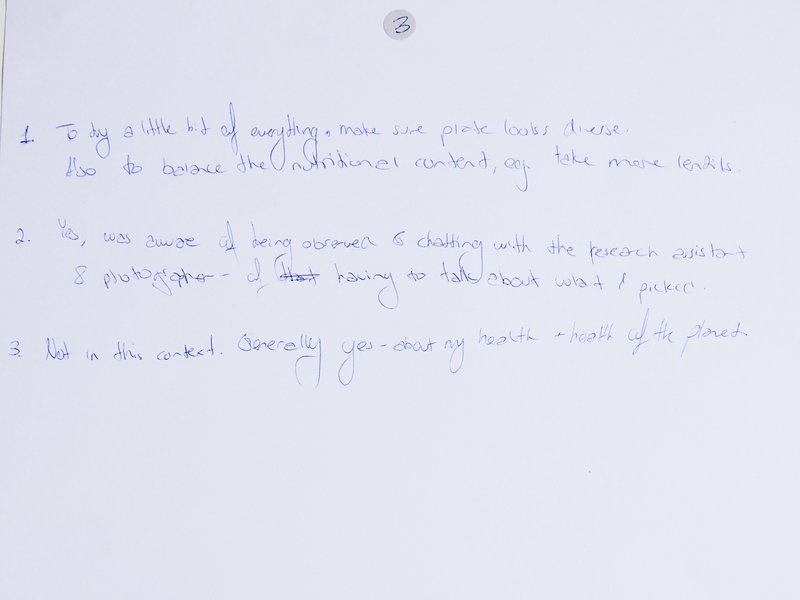 3
1. To try a little bit of everything, make sure plate looks diverse.
Also to balance the nutritional content, eg. take more lentils.
2. Yes, was aware of being observed & chatting with the research assistant
& photographer - of having to talk about what I picked.
3. Not in this context. Generally yes - about my health + health of the planet